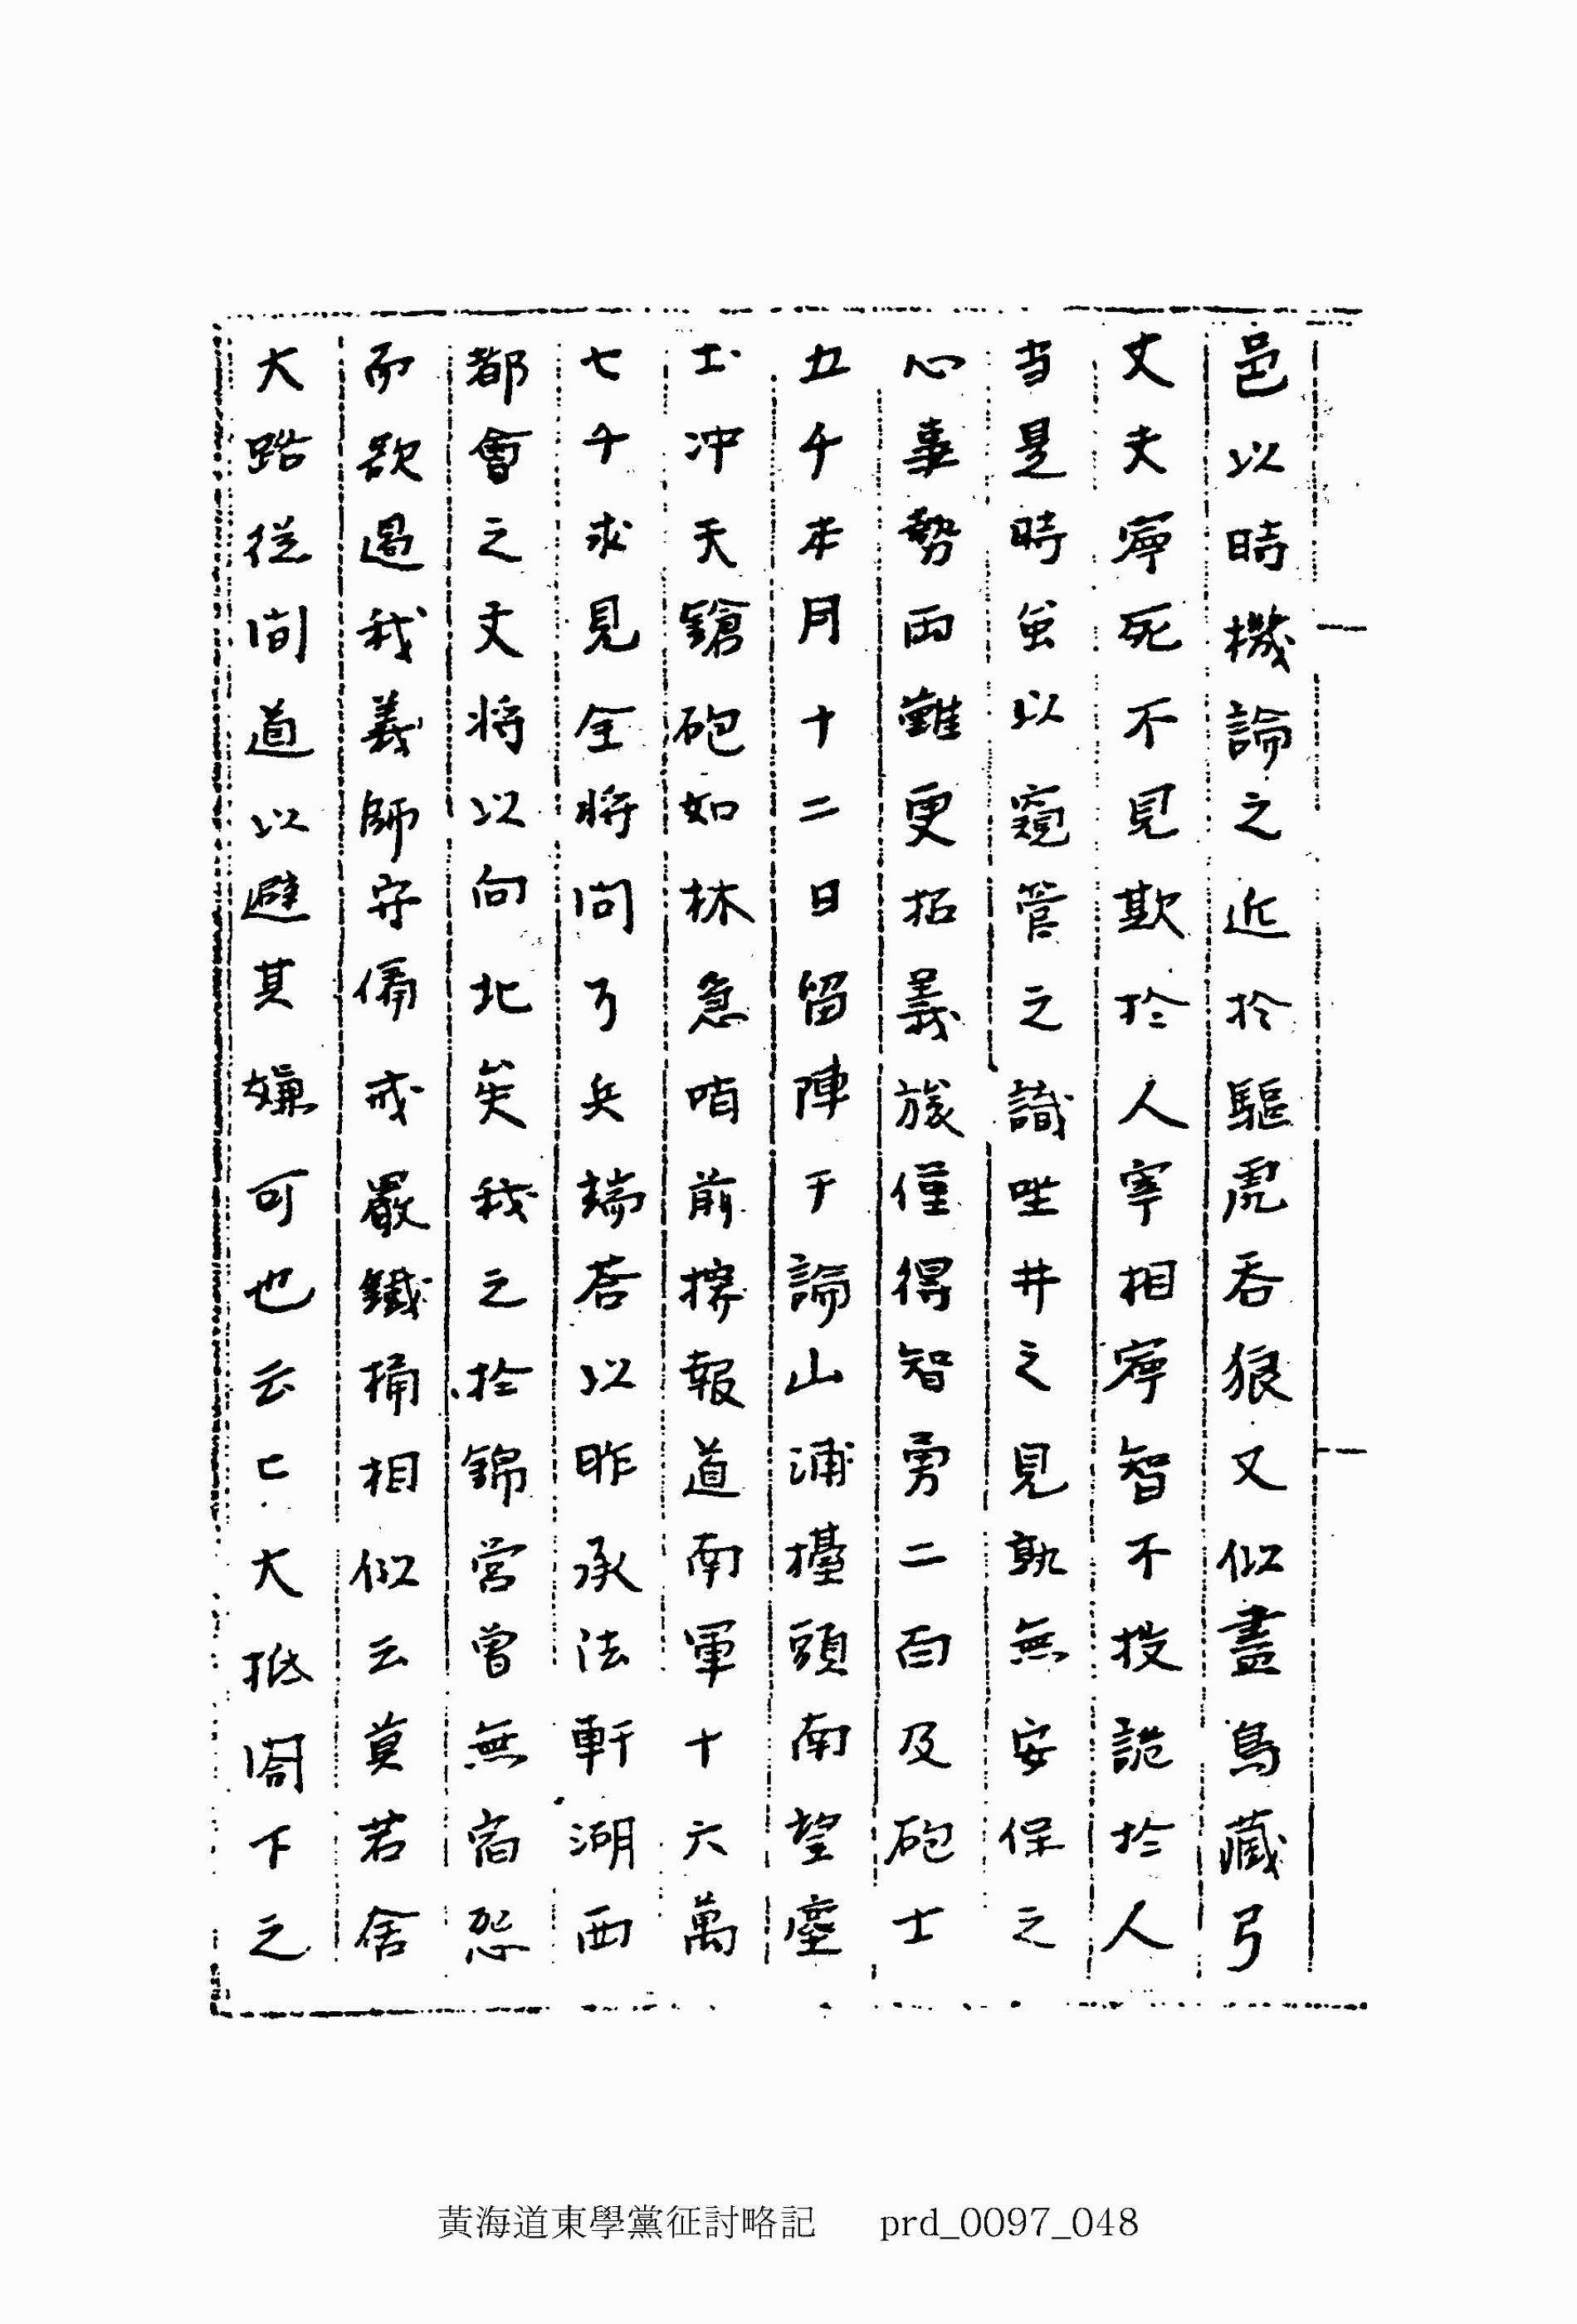 邑以時機論之近於驅虎吞狼又似盡鳥藏弓
丈夫寧死不見欺於人宰相寧智不投詭於人
当是時虽以窺管之識坐井之見孰無安保之
心事勢兩難更招義旅僅得智勇二百及砲士
五千本月十二日留陣于論山浦擡頭南望塵
土冲天鎗砲如林急哨前探報道南軍十六萬
七千求見全将問了兵端答以昨承法軒湖西
都會之丈将以向北矣我之於錦営曾無宿怨
而欲過我義師守俻戒嚴鐵桶相似云莫若舍
大路従间道以避其嫌可也云〻大抵閤下之
黃海道東學黨征討略記 prd_0097_048